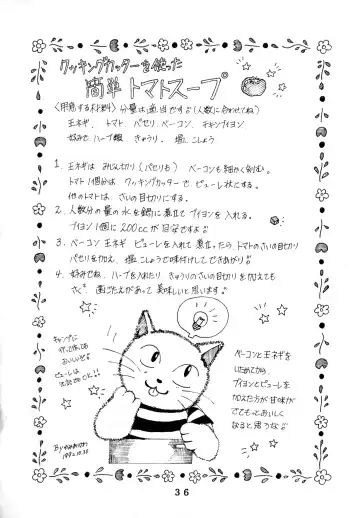 クッキングカッターを使った
簡単トマトスープ
〈用意する材料〉分量は適当です♪(人数に合わせてね)
玉ネギ、トマト、パセリ、ベーコン、チキンブイヨン
好みで、ハーブ類、きゅうり、塩、こしょう
1. 玉ネギは みじん切り(パセリも) ベーコンも細かく刻む。
トマト1個分は クッキングカッターで、ピューレ状にする。
他のトマトは さいの目切りにする。
2. 人数分の量の水を鍋に煮立て ブイヨンを入れる。
ブイヨン1個に200ccが目安です♪
3. ベーコン 玉ネギ ピューレを入れて煮立ったら、トマトのさいの目切り
パセリを加え、塩こしょうで味付けしてできあがり♪
4. 好みでね、ハーブを入れたり きゅうりのさいの目切りを加えても
歯ごたえがあって美味しいと思います♪
キャンプに
行って作っても
おいしいよ♪
ピューレは
OK!!
ベーコンと玉ネギを
いためてから、
ブイヨンとピューレを
加えた方が甘味が
でてもっとおいしく
なると思うな♪
By
1992.10.30
36